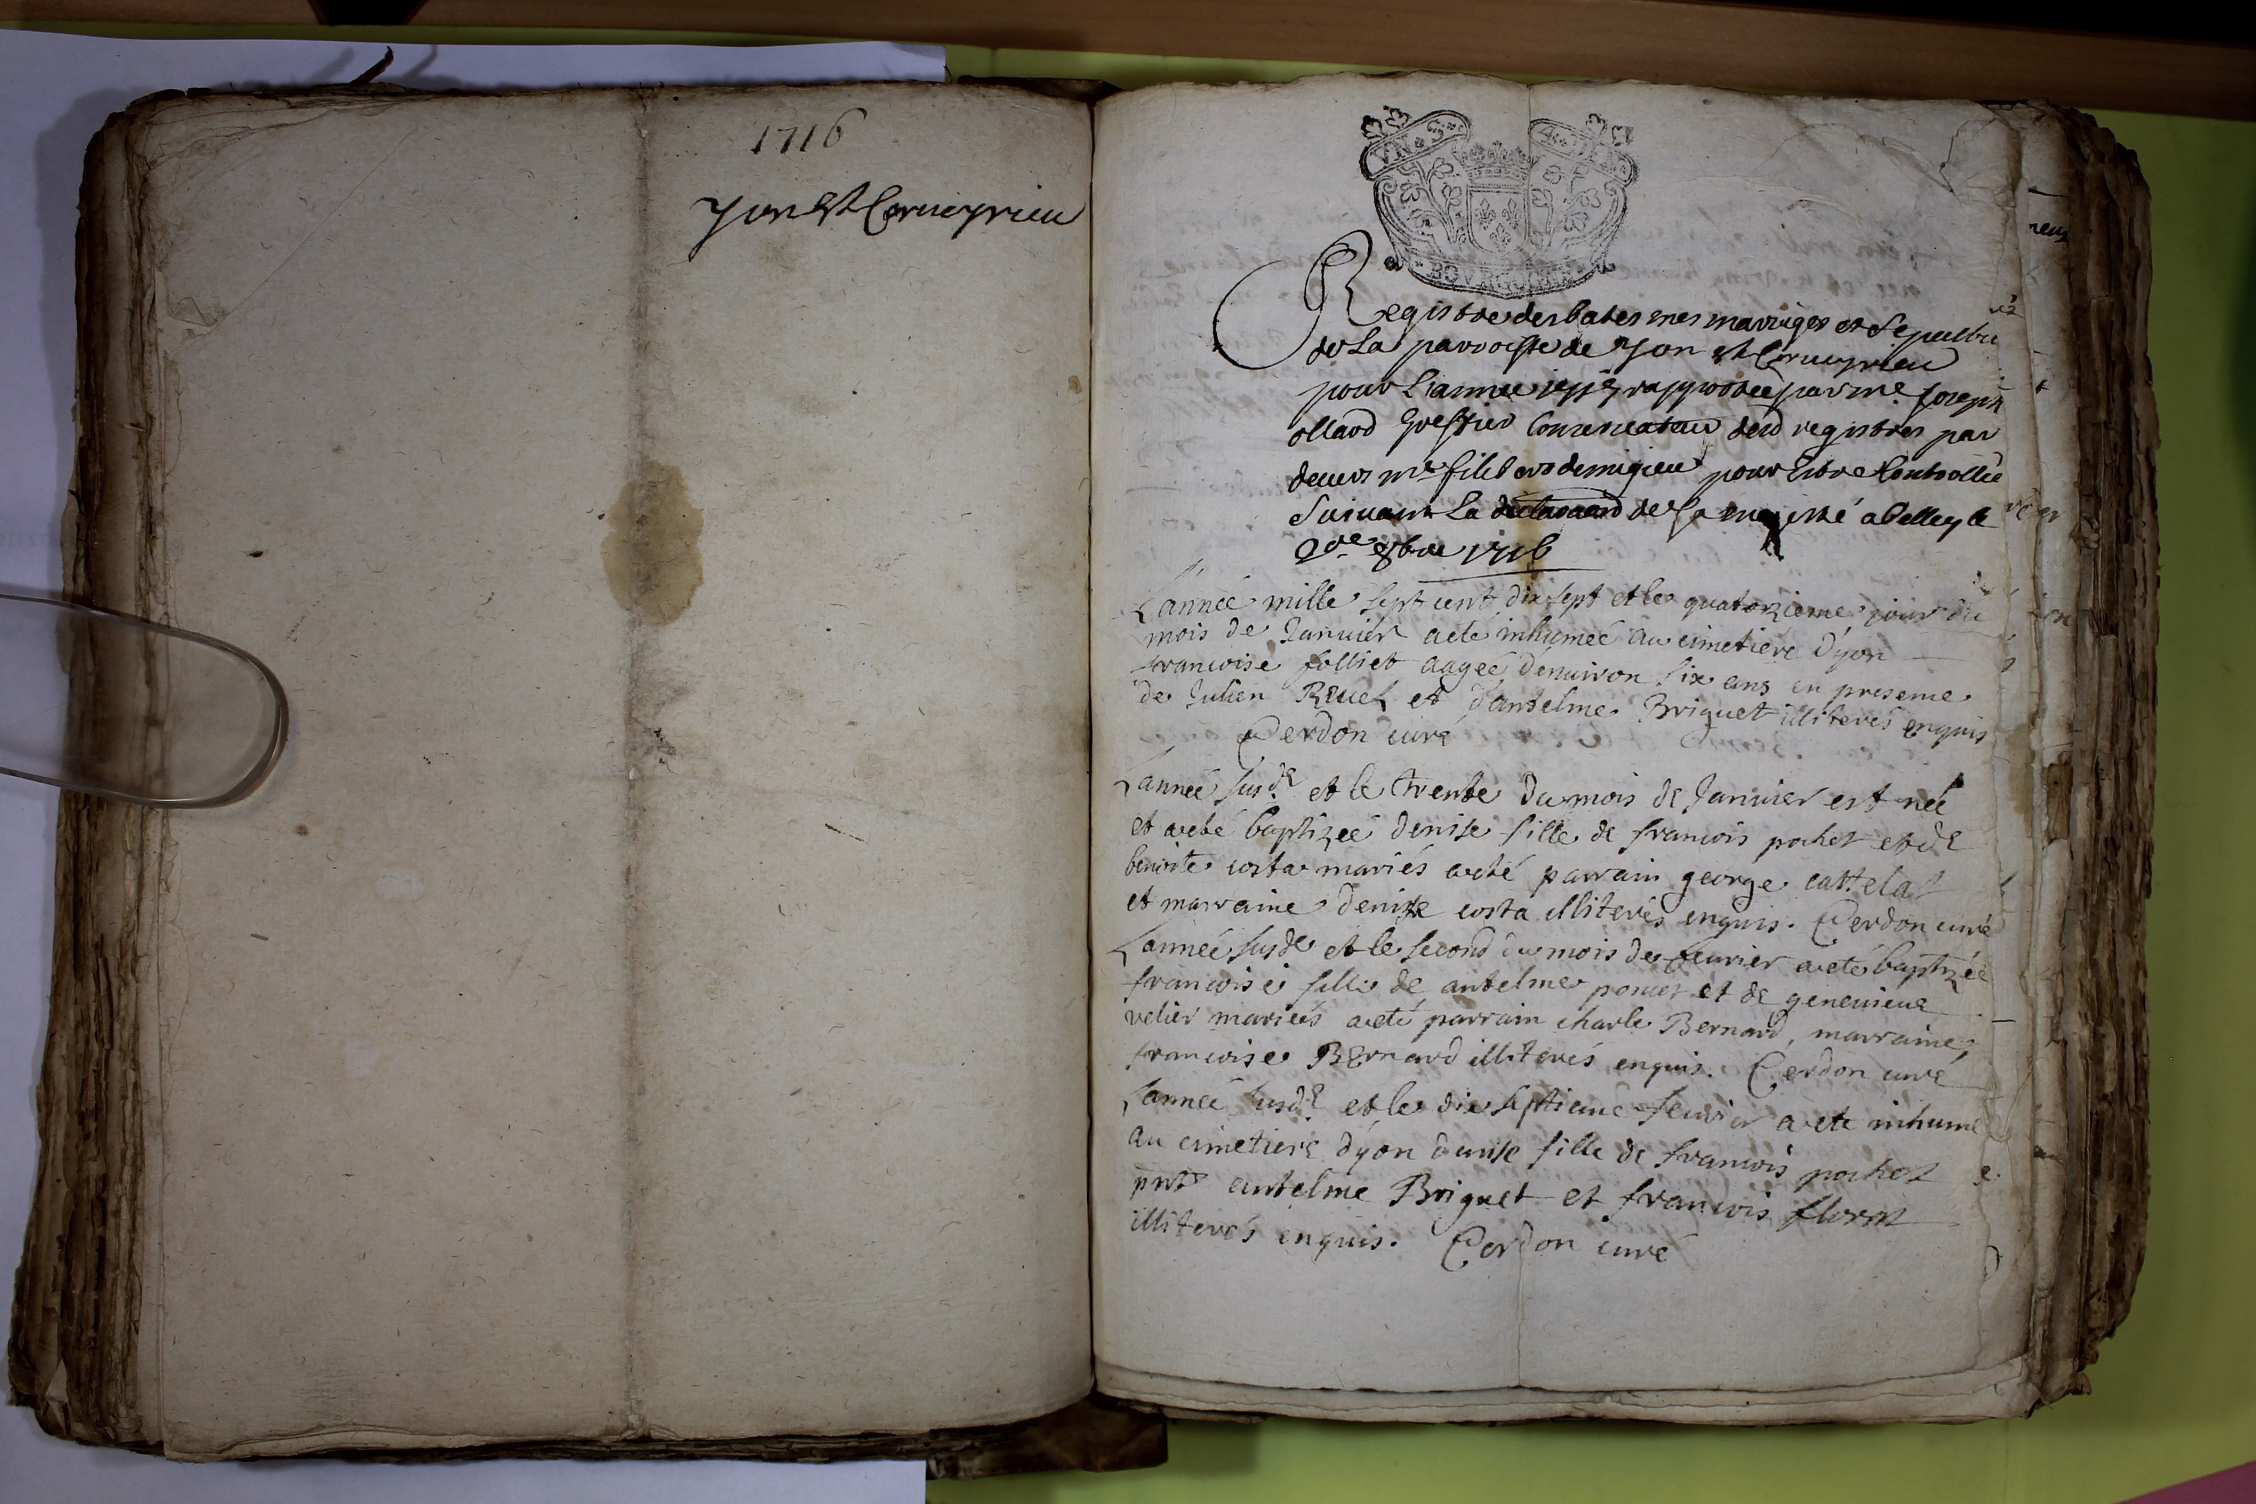 1716
yon et Corueyrieu
VN S
BOVRGOGNE
Registre des batesmes mariages et sepultu
de la parroisse de yon et Corueyrieu
pour l'année 1717 rapportée par me Joseph
ollard greffier Conseruateur desd registres par
deuers me filibers demigieu pour estre Controllée
suiuant la de sa majesté a belley le
2de 8bre 1716
L'année mille sept cent dix sept et le quatorzieme jour du
mois de Januiér aeté inhumeé au cimetiere d'yon
francoise folliet aageé denuiron six ans en presence
de Julien Reuel et d'antelme Briguet illiterés enquis
Cerdon curé
L'anneé susde et le trente du mois de Januier est neé
et aeté baptizeé denise fille de francois pochet et de
benoite costa mariés aeté parrain george cattelat
et marraine denise costa illiterés enquis. Cerdon curé
L'anneé susde et le second du mois de feurier aeté baptizeé
francoise fille de antelme poncet et de geneuieue
velier mariés aeté parrain charle Bernard, marraine,
francoise Bernard illiterés enquis. Cerdon curé
L'anneé susde et le dix septieme feurier aeté inhume
au cimetiere d'yon denise fille de francois pochet
pnts antelme Briguet et francois floret
illiterés enquis. Cerdon curé